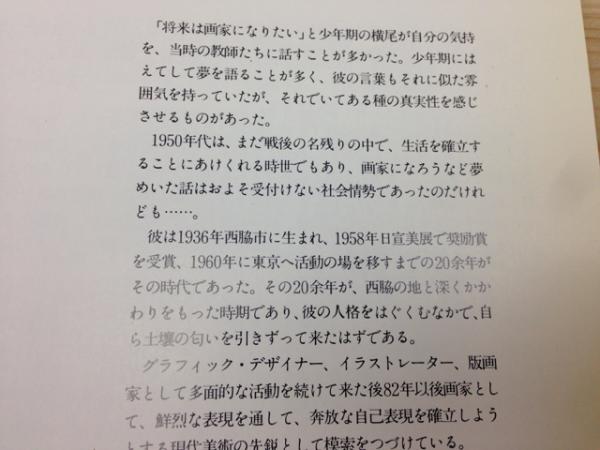 「将来は画家になりたい」と少年期の横尾が自分の気持
を、当時の教師たちに話すことが多かった。少年期には
えてして夢を語ることが多く、彼の言葉もそれに似た雰
囲気を持っていたが、それでいてある種の真実性を感じ
させるものがあった。
1950年代は、まだ戦後の名残りの中で、生活を確立す
ることにあけくれる時世でもあり、画家になろうなど夢
めいた話はおよそ受付けない社会情勢であったのだけれ
ども……。
彼は1936年西脇市に生まれ、1958年日宣美展で奨励賞
を受賞、1960年に東京へ活動の場を移すまでの20余年が
その時代であった。その20余年が、西脇の地と深くかか
わりをもった時期であり、彼の人格をはぐくむなかで、自
ら土壌の匂いを引きずって来たはずである。
グラフィック・デザイナー、イラストレーター、版画
家として多面的な活動を続けて来た後82年以後画家とし
て、鮮烈な表現を通して、奔放な自己表現を確立しよう
とする現代美術の先鋭として模索をつづけている。